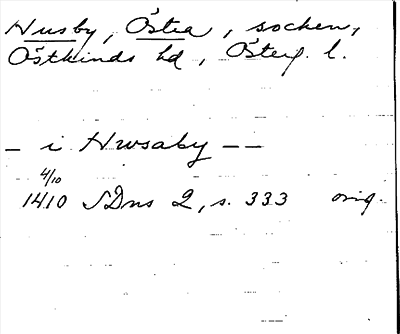 Husby, Östra, socken,
Östkinds hd, Österg. l.
– i Hwsaby – –
4/10
1410 SDns 2, s. 333 orig.